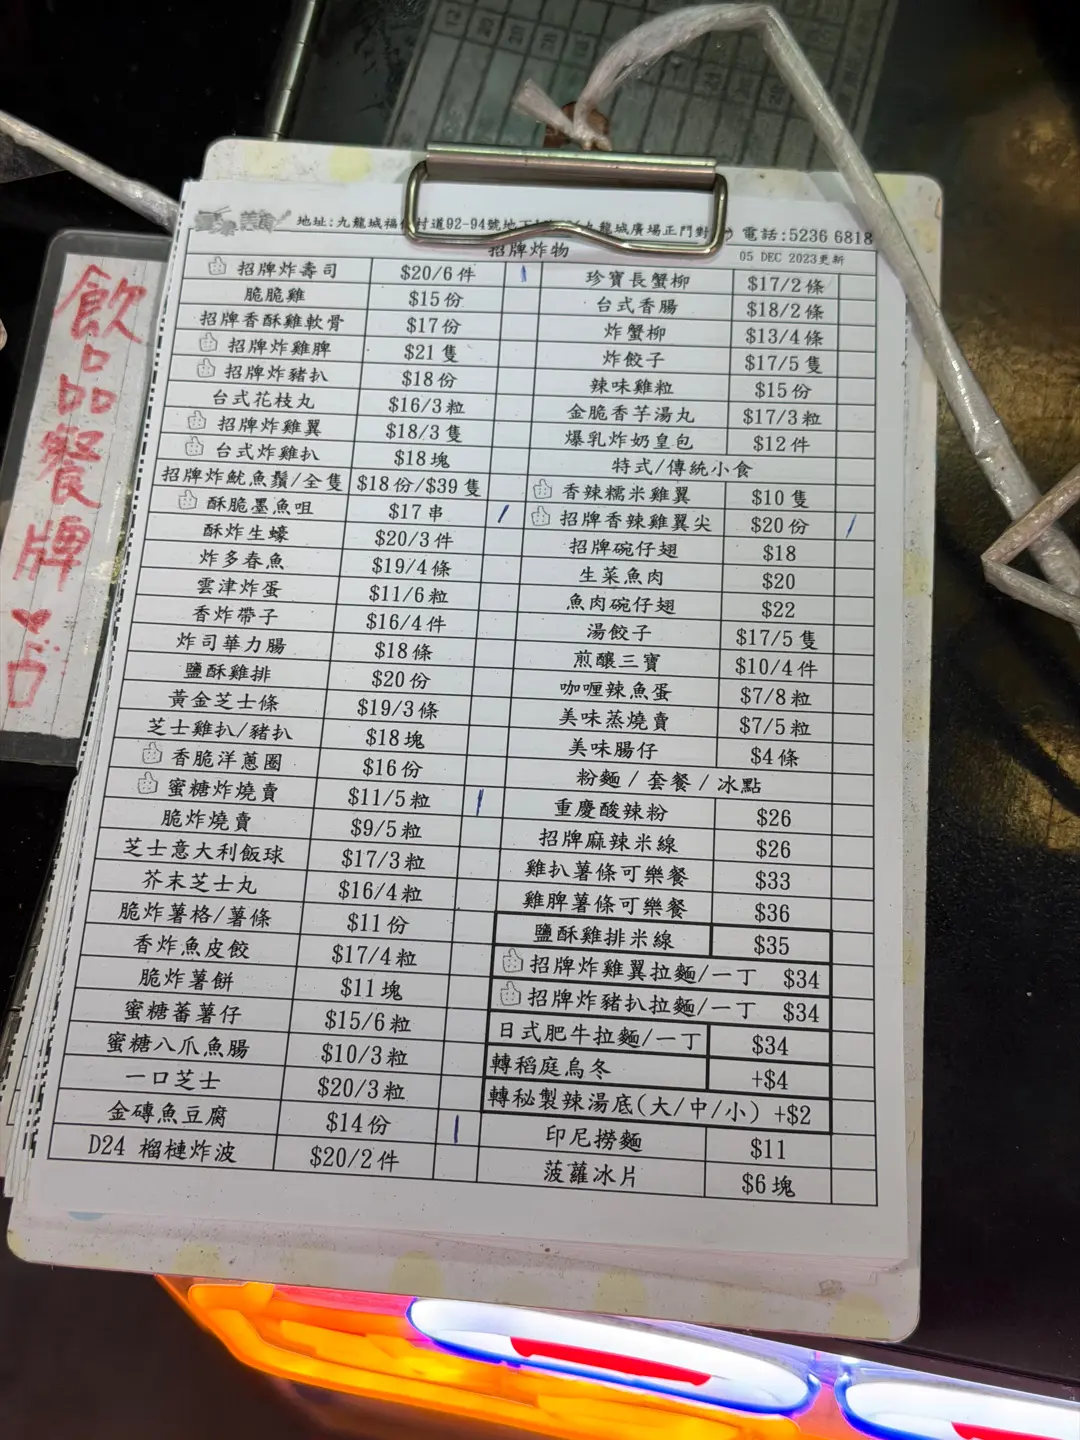 飲品餐牌
美食
地址:九龍城福佬村道92-94號地下 九龍城廣場正門對 電話:5236 6818
招牌炸物
05 DEC 2023更新
招牌炸壽司 $20/6件
脆脆雞 $15份
招牌香酥雞軟骨 $17份
招牌炸雞脾 $21隻
招牌炸豬扒 $18份
台式花枝丸 $16/3粒
招牌炸雞翼 $18/3隻
台式炸雞扒 $18塊
招牌炸魷魚鬚/全隻 $18份/$39隻
酥脆墨魚咀 $17串
酥炸生蠔 $20/3件
炸多春魚 $19/4條
雲津炸蛋 $11/6粒
香炸帶子 $16/4件
炸司華力腸 $18條
鹽酥雞排 $20份
黃金芝士條 $19/3條
芝士雞扒/豬扒 $18塊
香脆洋蔥圈 $16份
蜜糖炸燒賣 $11/5粒
脆炸燒賣 $9/5粒
芝士意大利飯球 $17/3粒
芥末芝士丸 $16/4粒
脆炸薯格/薯條 $11份
香炸魚皮餃 $17/4粒
脆炸薯餅 $11塊
蜜糖蕃薯仔 $15/6粒
蜜糖八爪魚腸 $10/3粒
一口芝士 $20/3粒
金磚魚豆腐 $14份
D24 榴槤炸波 $20/2件
珍寶長蟹柳 $17/2條
台式香腸 $18/2條
炸蟹柳 $13/4條
炸餃子 $17/5隻
辣味雞粒 $15份
金脆香芋湯丸 $17/3粒
爆乳炸奶皇包 $12件
特式/傳統小食
香辣糯米雞翼 $10隻
招牌香辣雞翼尖 $20份
招牌碗仔翅 $18
生菜魚肉 $20
魚肉碗仔翅 $22
湯餃子 $17/5隻
煎釀三寶 $10/4件
咖喱辣魚蛋 $7/8粒
美味蒸燒賣 $7/5粒
美味腸仔 $4條
粉麵/套餐/冰點
重慶酸辣粉 $26
招牌麻辣米線 $26
雞扒薯條可樂餐 $33
雞脾薯條可樂餐 $36
鹽酥雞排米線 $35
招牌炸雞翼拉麵/一丁 $34
招牌炸豬扒拉麵/一丁 $34
日式肥牛拉麵/一丁 $34
轉稻庭烏冬 +$4
轉秘製辣湯底(大/中/小) +$2
印尼撈麵 $11
菠蘿冰片 $6塊